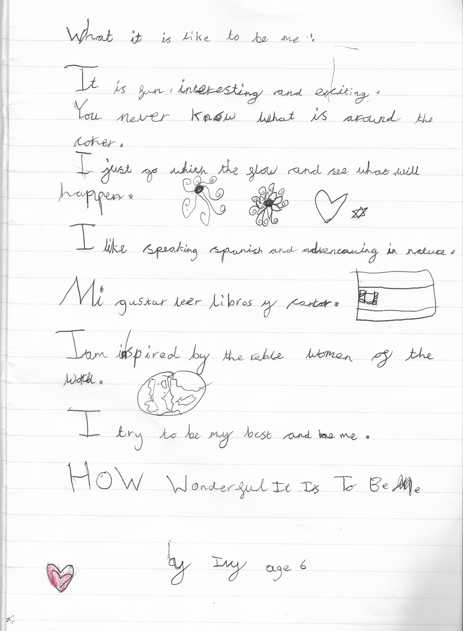 What it is like to be me!
It is fun, interesting and exciting.
You never know what is around the
coner.
I just go whith the flow and see what will
happen.
I like speaking spanish and advencuning in nature.
Mi gustar leer libros y cantar.
I am inspired by the reble women of the
world.
I try to be my best and be me.
HOW Wonderful It Is To Be Me
by Ivy age 6